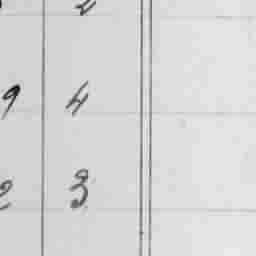 2
9 4
2 3